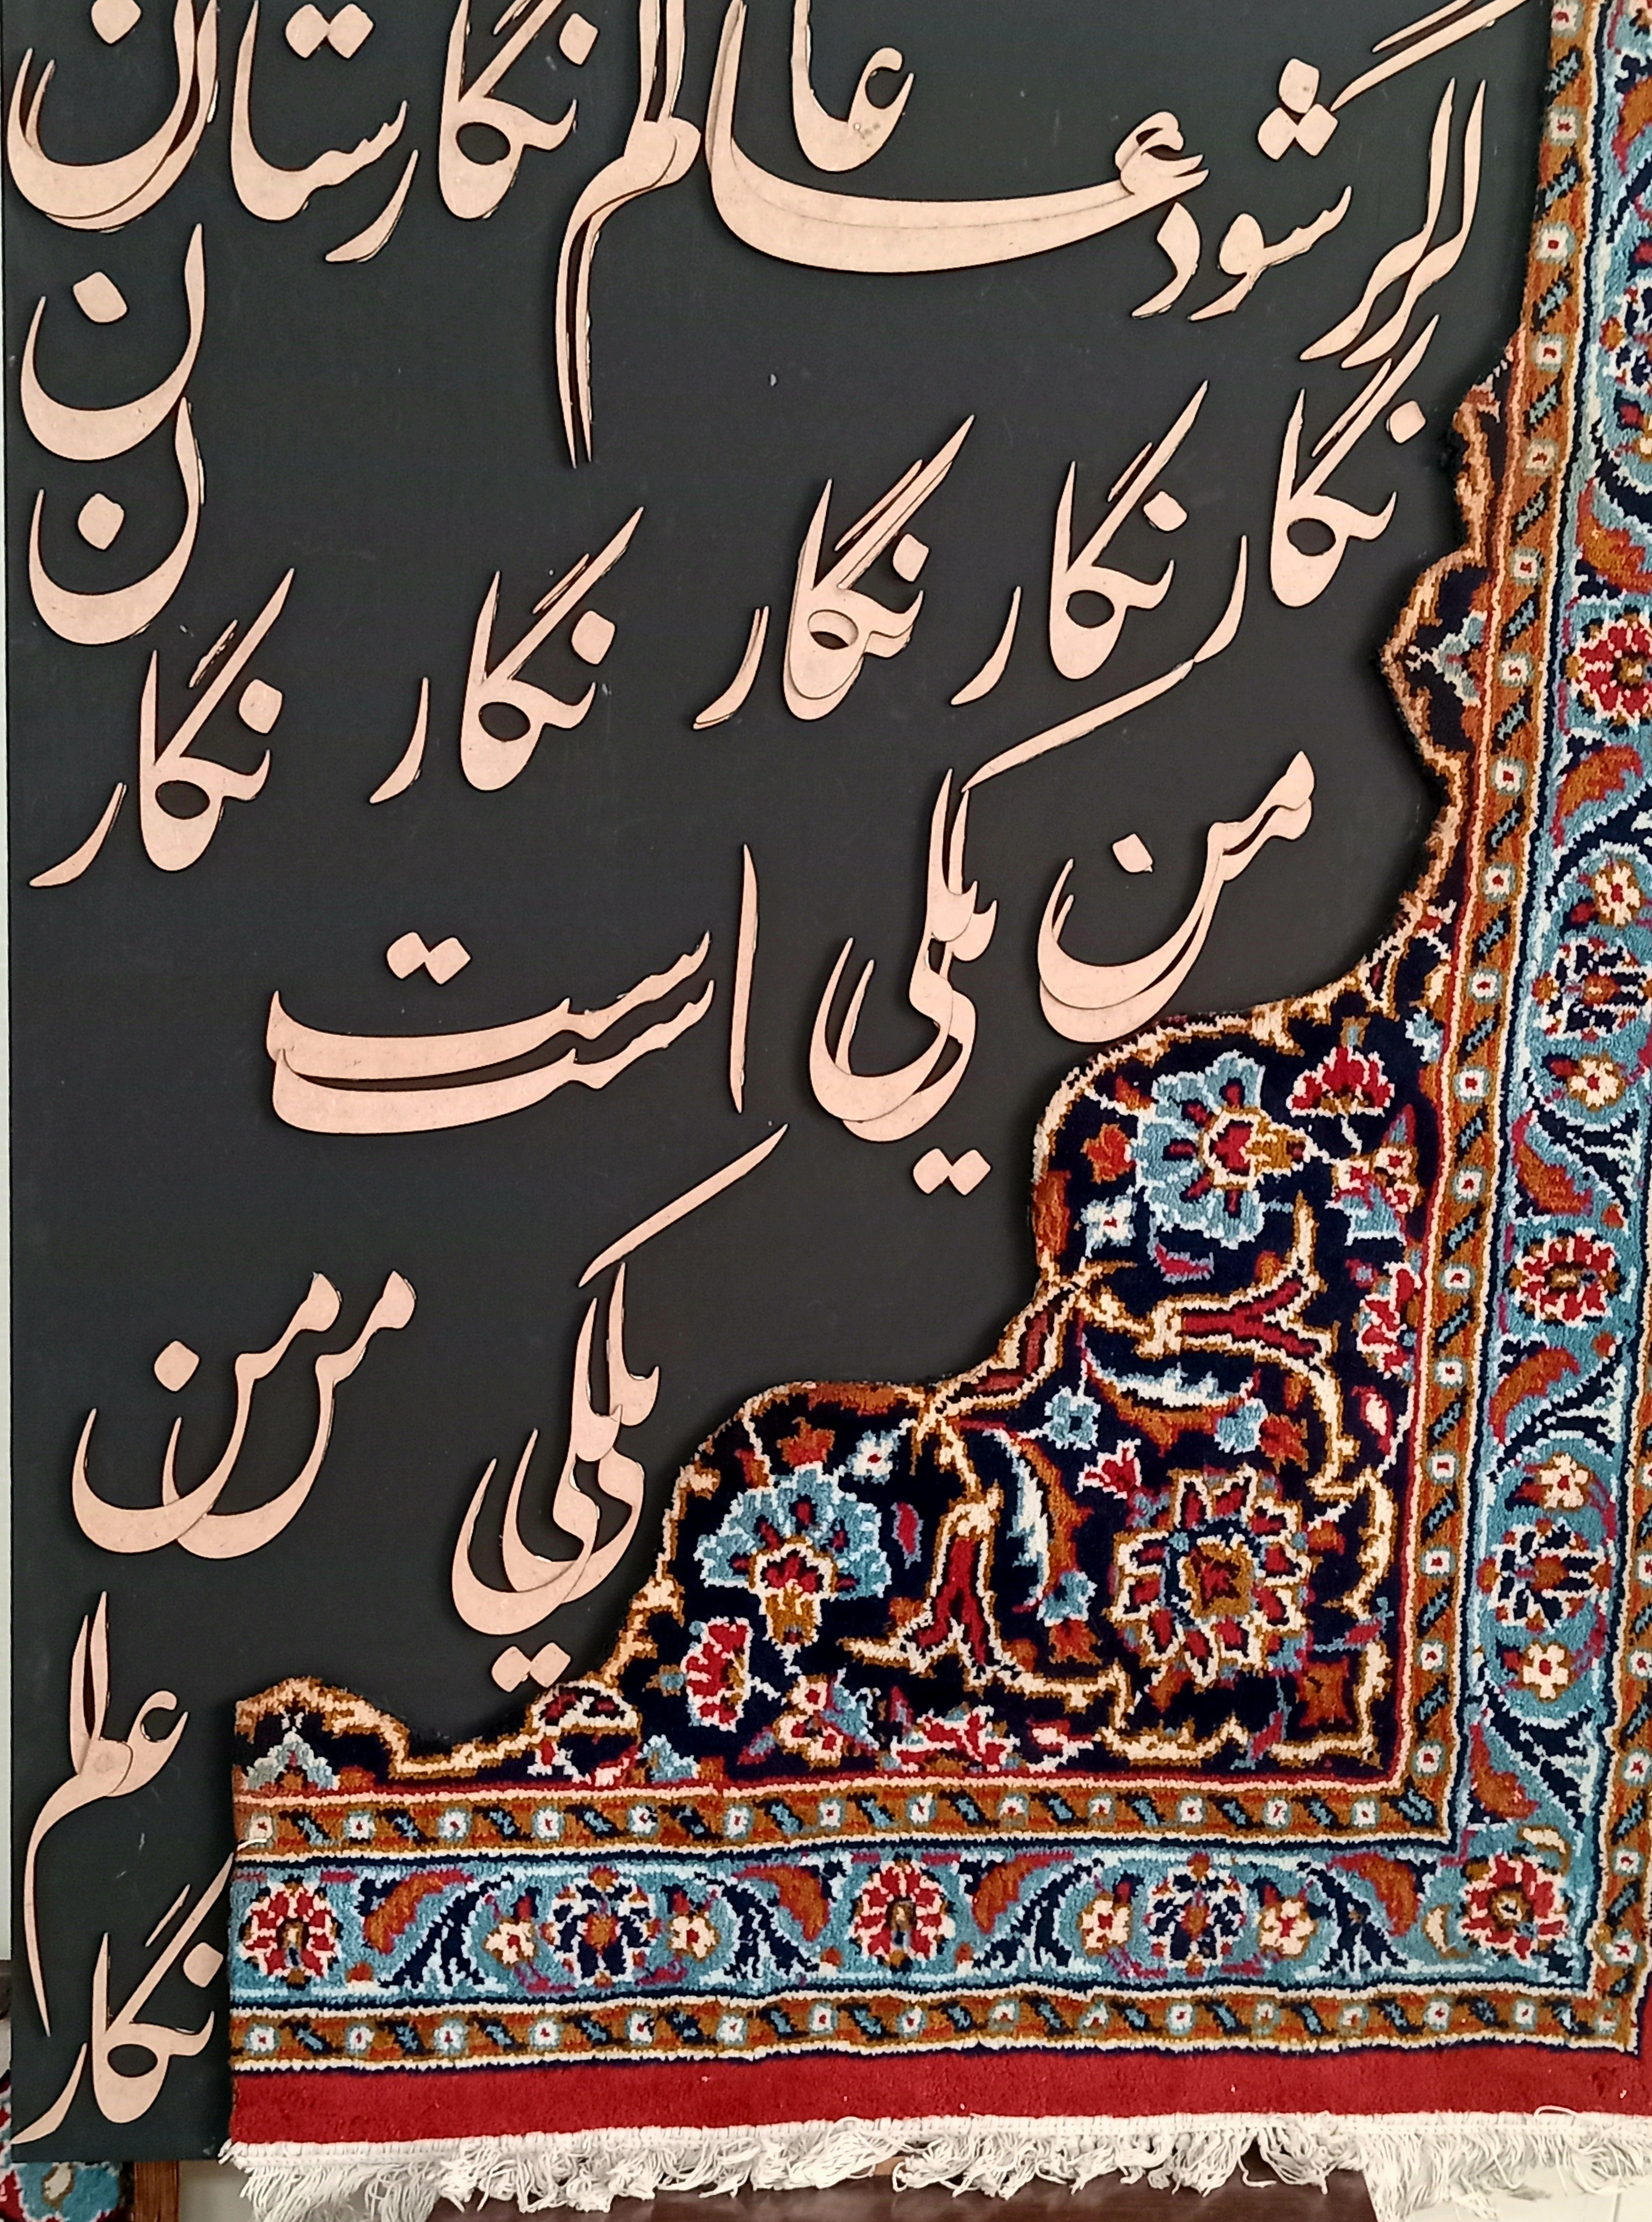 گر شود عالم نگارستان
ن
ن
نگار نگار نگار نگار نگار
من یکی است
یکی من
علم
نگار